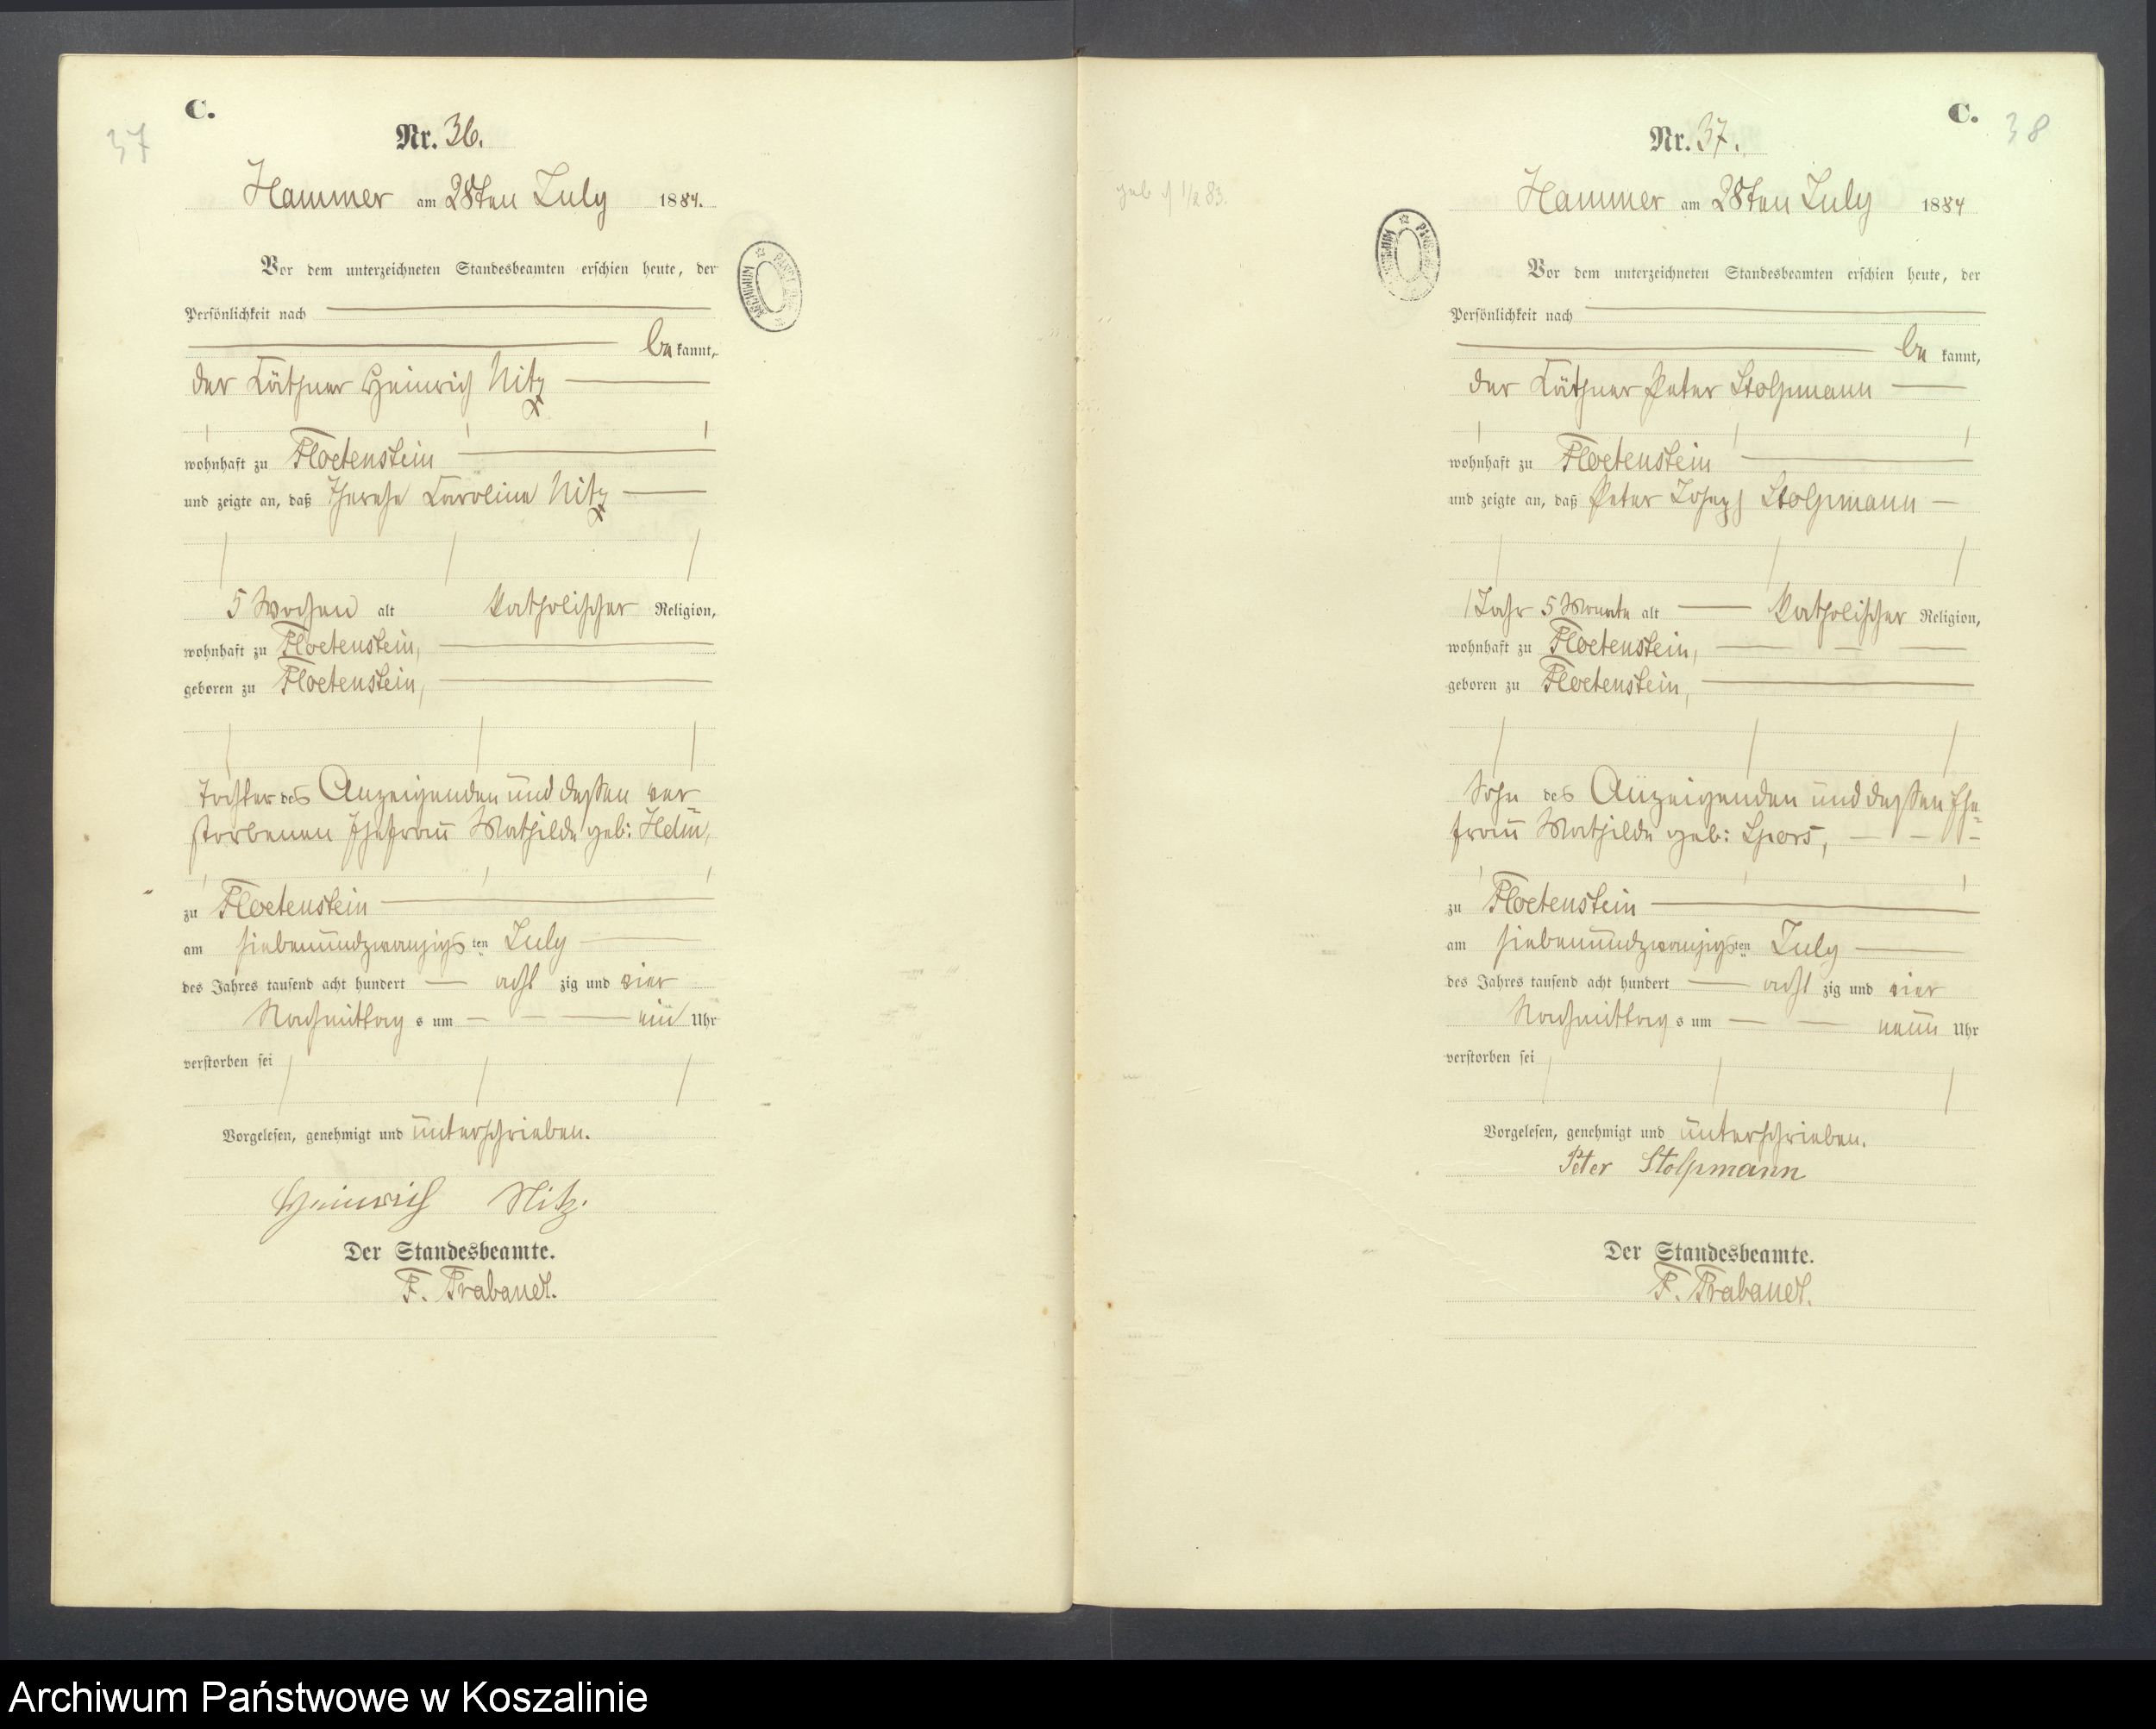 C.
37
Nr. 36.
Hammer am 28ten July 1884.
Vor dem unterzeichneten Standesbeamten erschien heute, der
Persönlichkeit nach
be kannt,
der Käthner Heinrich Nitz
wohnhaft zu Floetenstein
und zeigte an, daß Therese Caroline Nitz
5 Wochen alt katholischer Religion,
wohnhaft zu Floetenstein,
geboren zu Floetenstein,
Tochter des Anzeigenden und dessen ver-
storbenen Ehefrau Mathilde geb:
zu Floetenstein
am siebenundzwanzigsten July
des Jahres tausend acht hundert acht zig und vier
Nachmittags um ein Uhr
verstorben sei
Vorgelesen, genehmigt und unterschrieben.
Heinrich Nitz.
Der Standesbeamte.
F. Trabandt.
C.
38
Nr. 37.
Hammer am 28ten July 1884
Vor dem unterzeichneten Standesbeamten erschien heute, der
Persönlichkeit nach
be kannt,
der Käthner Peter Stolpmann
wohnhaft zu Floetenstein
und zeigte an, daß Peter Joseph Stolpmann
1 Jahr 5 Monate alt katholischer Religion,
wohnhaft zu Floetenstein,
geboren zu Floetenstein,
Sohn des Anzeigenden und dessen Ehe-
frau Mathilde geb: Spors,
zu Floetenstein
am siebenundzwanzigsten July
des Jahres tausend acht hundert acht zig und vier
Nachmittags um neun Uhr
verstorben sei
Vorgelesen, genehmigt und unterschrieben.
Peter Stolpmann
Der Standesbeamte.
F. Trabandt.
Archiwum Państwowe w Koszalinie